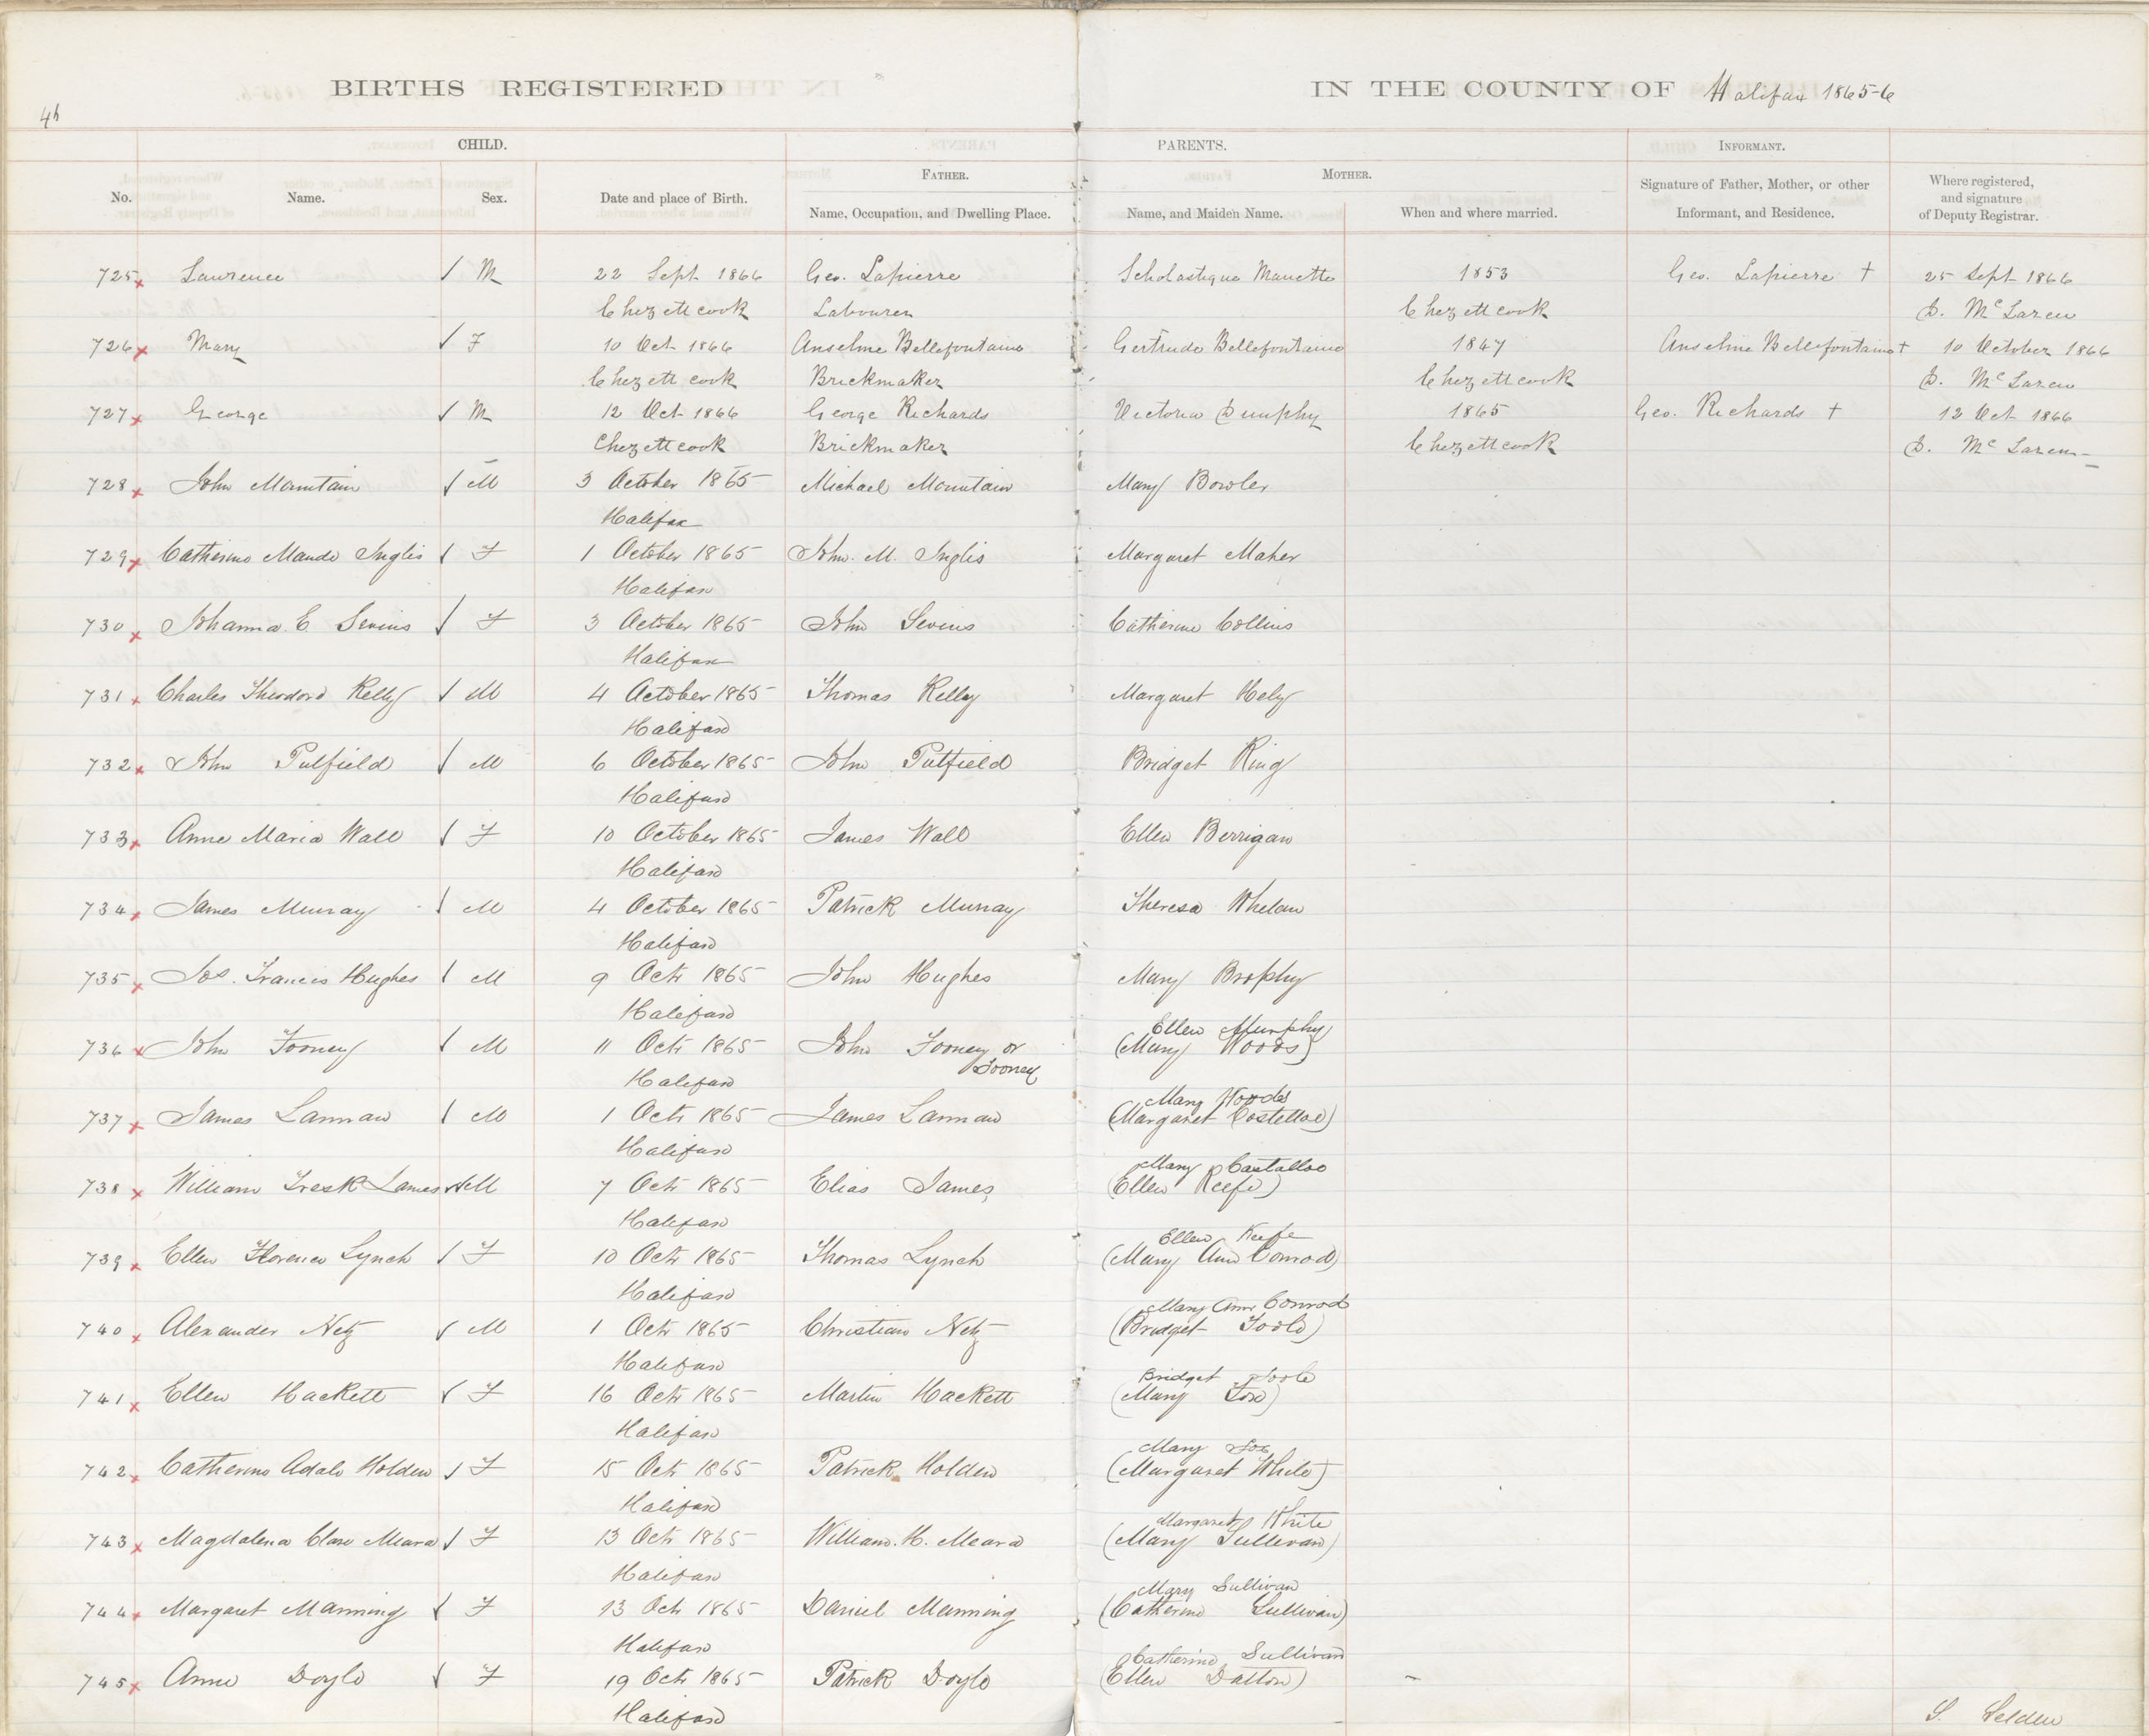 BIRTHS REGISTERED IN THE COUNTY OF Halifax 1865-6
CHILD. PARENTS. INFORMANT.
FATHER. MOTHER.
No. Name. Sex. Date and place of Birth. Name, Occupation, and Dwelling Place. Name, and Maiden Name. When and where married. Signature of Father, Mother, or other Informant, and Residence. Where registered, and signature of Deputy Registrar.
725 Lawrence M 22 Sept 1866 Geo. Lapierre Scholastique Manette 1853 Geo. Lapierre + 25 Sept 1866
Chezettcook Labourer Chezettcook D. McLaren
726 Mary F 10 Oct 1866 Anselme Bellefontaine Gertrude Bellefontaine 1847 Anselme Bellefontaine + 10 October 1866
Chezettcook Brickmaker Chezettcook D. McLaren
727 George M 12 Oct 1866 George Richards Victoria Dumphy 1865 Geo. Richards + 12 Oct 1866
Chezettcook Brickmaker Chezettcook D. McLaren
728 John Mountain M 3 October 1865 Michael Mountain Mary Bowler
Halifax
729 Catherine Maude Inglis F 1 October 1865 John. M. Inglis Margaret Maher
Halifax
730 Johanna E Sevins F 3 October 1865 John Sevins Catherine Collins
Halifax
731 Charles Theodore Kelly M 4 October 1865 Thomas Kelly Margaret Hely
Halifax
732 John Pulfield M 6 October 1865 John Pulfield Bridget Ring
Halifax
733 Anne Maria Wall F 10 October 1865 James Wall Ellen Berrigan
Halifax
734 James Murray M 4 October 1865 Patrick Murray Theresa Whelan
Halifax
735 Jos. Francis Hughes M 9 Octr 1865 John Hughes Mary Brophy
Halifax Ellen Murphy
736 John Tooney M 11 Octr 1865 John Tooney or (Mary Woods)
Tooney
Halifax Mary Woods
737 James Lannan M 1 Octr 1865 James Lannan (Margaret Costelloe)
Halifax Mary Castalloe
738 William Tresk James M 7 Octr 1865 Elias James (Ellen Keefe)
Halifax Ellen Keefe
739 Ellen Florence Lynch F 10 Octr 1865 Thomas Lynch (Mary Ann Conrod)
Halifax Mary Ann Conrod
740 Alexander Netz M 1 Octr 1865 Christian Netz (Bridget Toole)
Halifax Bridget Toole
741 Ellen Hackett F 16 Octr 1865 Martin Hackett (Mary Fox)
Halifax Mary Fox
742 Catherine Adale Holden F 15 Octr 1865 Patrick Holden (Margaret White)
Halifax Margaret White
743 Magdalena Clare Meara F 13 Octr 1865 William. H. Meara (Mary Sullivan)
Halifax Mary Sullivan
744 Margaret Manning F 13 Octr 1865 Daniel Manning (Catherine Sullivan)
Halifax Catherine Sullivan
745 Anne Doyle F 19 Octr 1865 Patrick Doyle (Ellen Dalton)
Halifax S. Selden